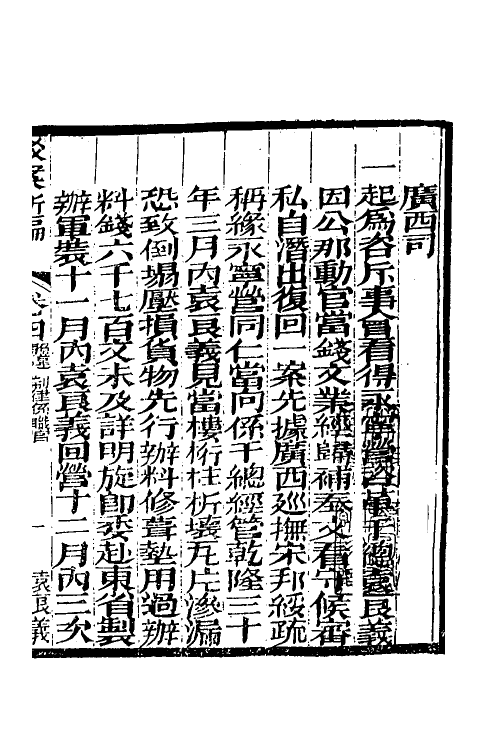 廣西司
一起爲咨示事會看得永寧營千總袁良義
因公那動官當錢文業經歸補奉文看守候審
私自潛出復回一案先據廣西廵撫宋邦綏疏
稱緣永寧營同仁當向係千總經管乾隆三十
年三月內袁良義見當樓桁柱折壞瓦片滲漏
恐致倒塌壓損貨物先行辦料修葺墊用過辦
料錢六千七百文未及詳明旋即委赴東省製
辦軍裝十一月內袁良義回營十二月內三次
駁案新編
卷四 制律係職官
一
袁良義